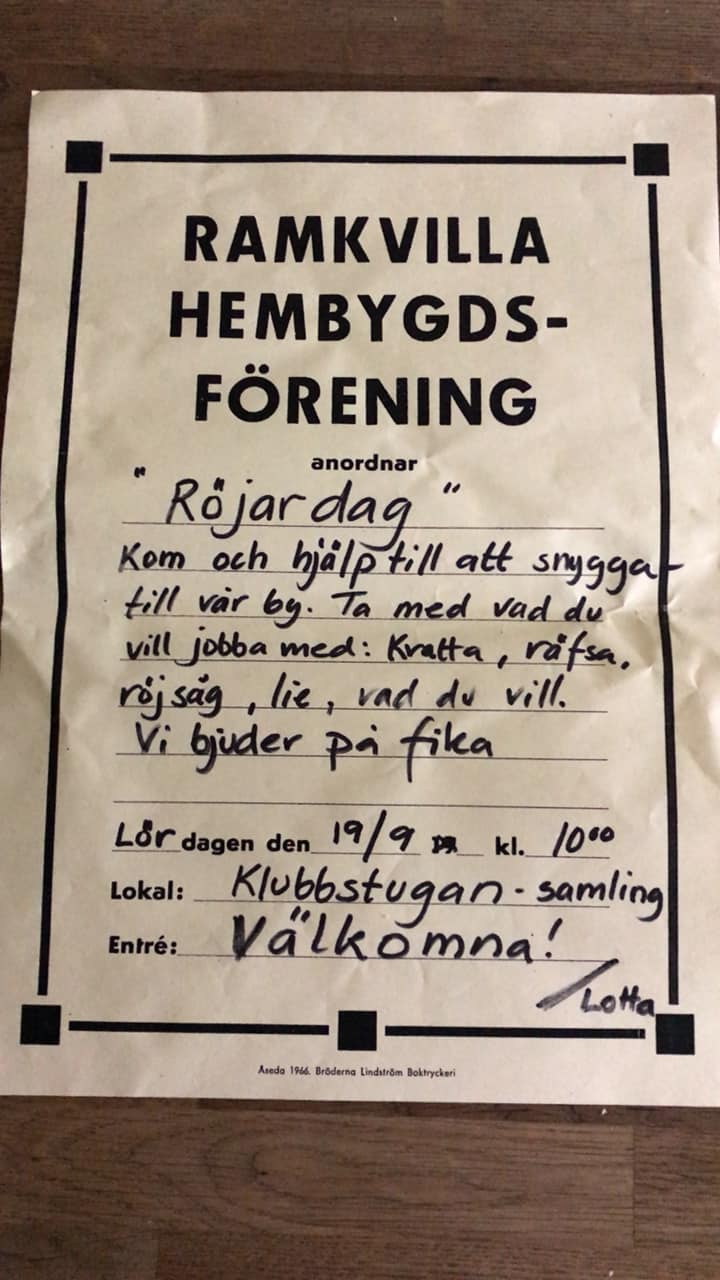 RAMKVILLA
HEMBYGDS-
FÖRENING
anordnar
"Röjardag"
Kom och hjälp till att snygga
till vår by. Ta med vad du
vill jobba med: Kratta, räfsa,
röjsåg, lie, vad du vill.
Vi bjuder på fika
Lördagen den 19/9 kl. 10⁰⁰
Lokal: Klubbstugan - samling
Entré: Välkomna!
/Lotta
Åseda 1966. Bröderna Lindström Boktryckeri